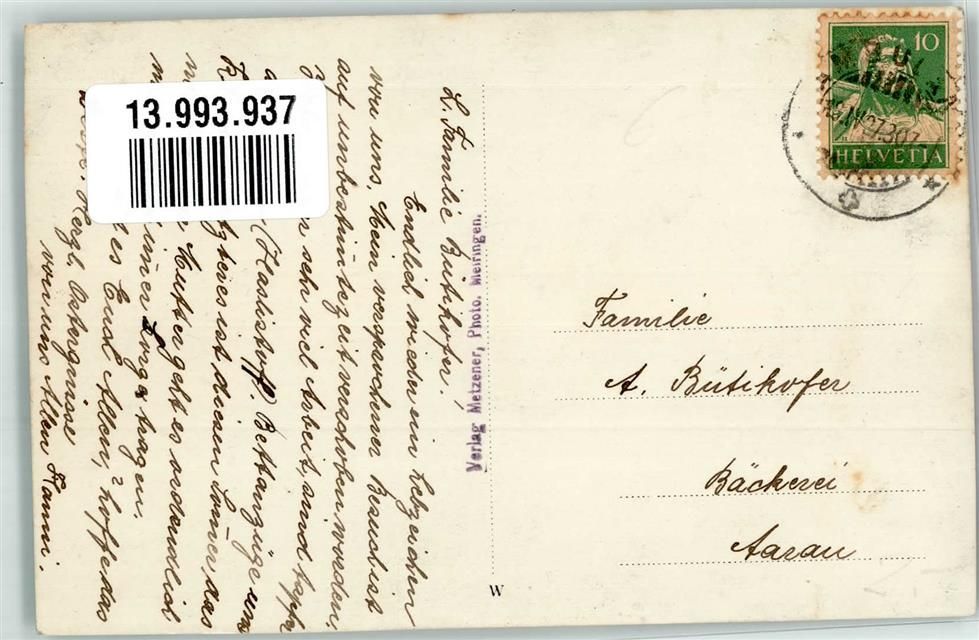 L. Familie Bütikofer!
Endlich wieder ein Lebzeichen
von uns. Mein versprochener Besuch ist
auf unbestimte zeit verschoben worden,
sehr viel Arbeit, sind tapfer
(Haslistoff) Bettanzüge um
ist diesen Somer das
Mutter geht es ordentlich
immer Sorge tragen.
es Euch Allen? hoffe das
Herzl. Ostergrüsse
von uns Allen Fanni.
Verlag Metzener, Photo. Meiringen.
W
13.993.937
10
HELVETIA
Familie
A. Bütikofer
Bäckerei
Aarau